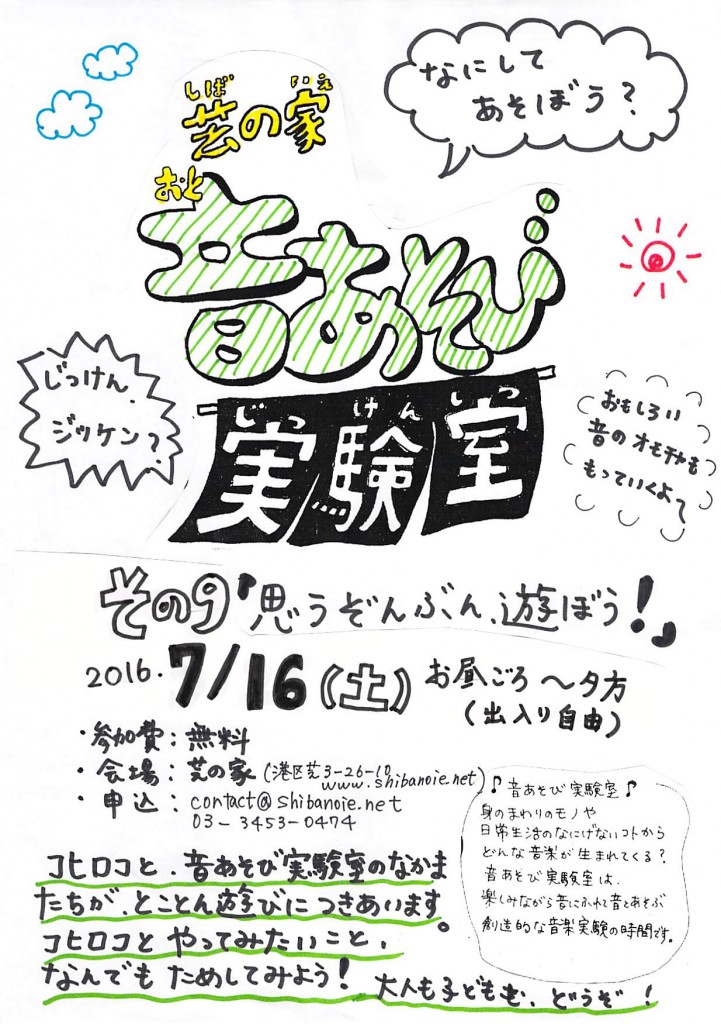 なにして
あそぼう?
しば いえ
芝の家
おと
音あそび
じっけんしつ
実験室
じっけん、
ジッケン?
おもしろい
音のオモチャも
もっていくよ〜
その9「思うぞんぶん、遊ぼう!」
2016. 7/16(土) お昼ごろ〜夕方
(出入り自由)
・参加費:無料
・会場:芝の家(港区芝3-26-10
www.shibanoie.net)
・申込:contact@shibanoie.net
03-3453-0474
♪音あそび実験室♪
身のまわりのモノや
日常生活のなにげないコトから
どんな音楽が生まれてくる?
音あそび実験室は、
楽しみながら音にふれ音とあそぶ
創造的な音楽実験の時間です。
コヒロコと、音あそび実験室のなかま
たちが、とことん遊びにつきあいます。
コヒロコとやってみたいこと、
なんでもためしてみよう!
大人も子どもも、どうぞ!